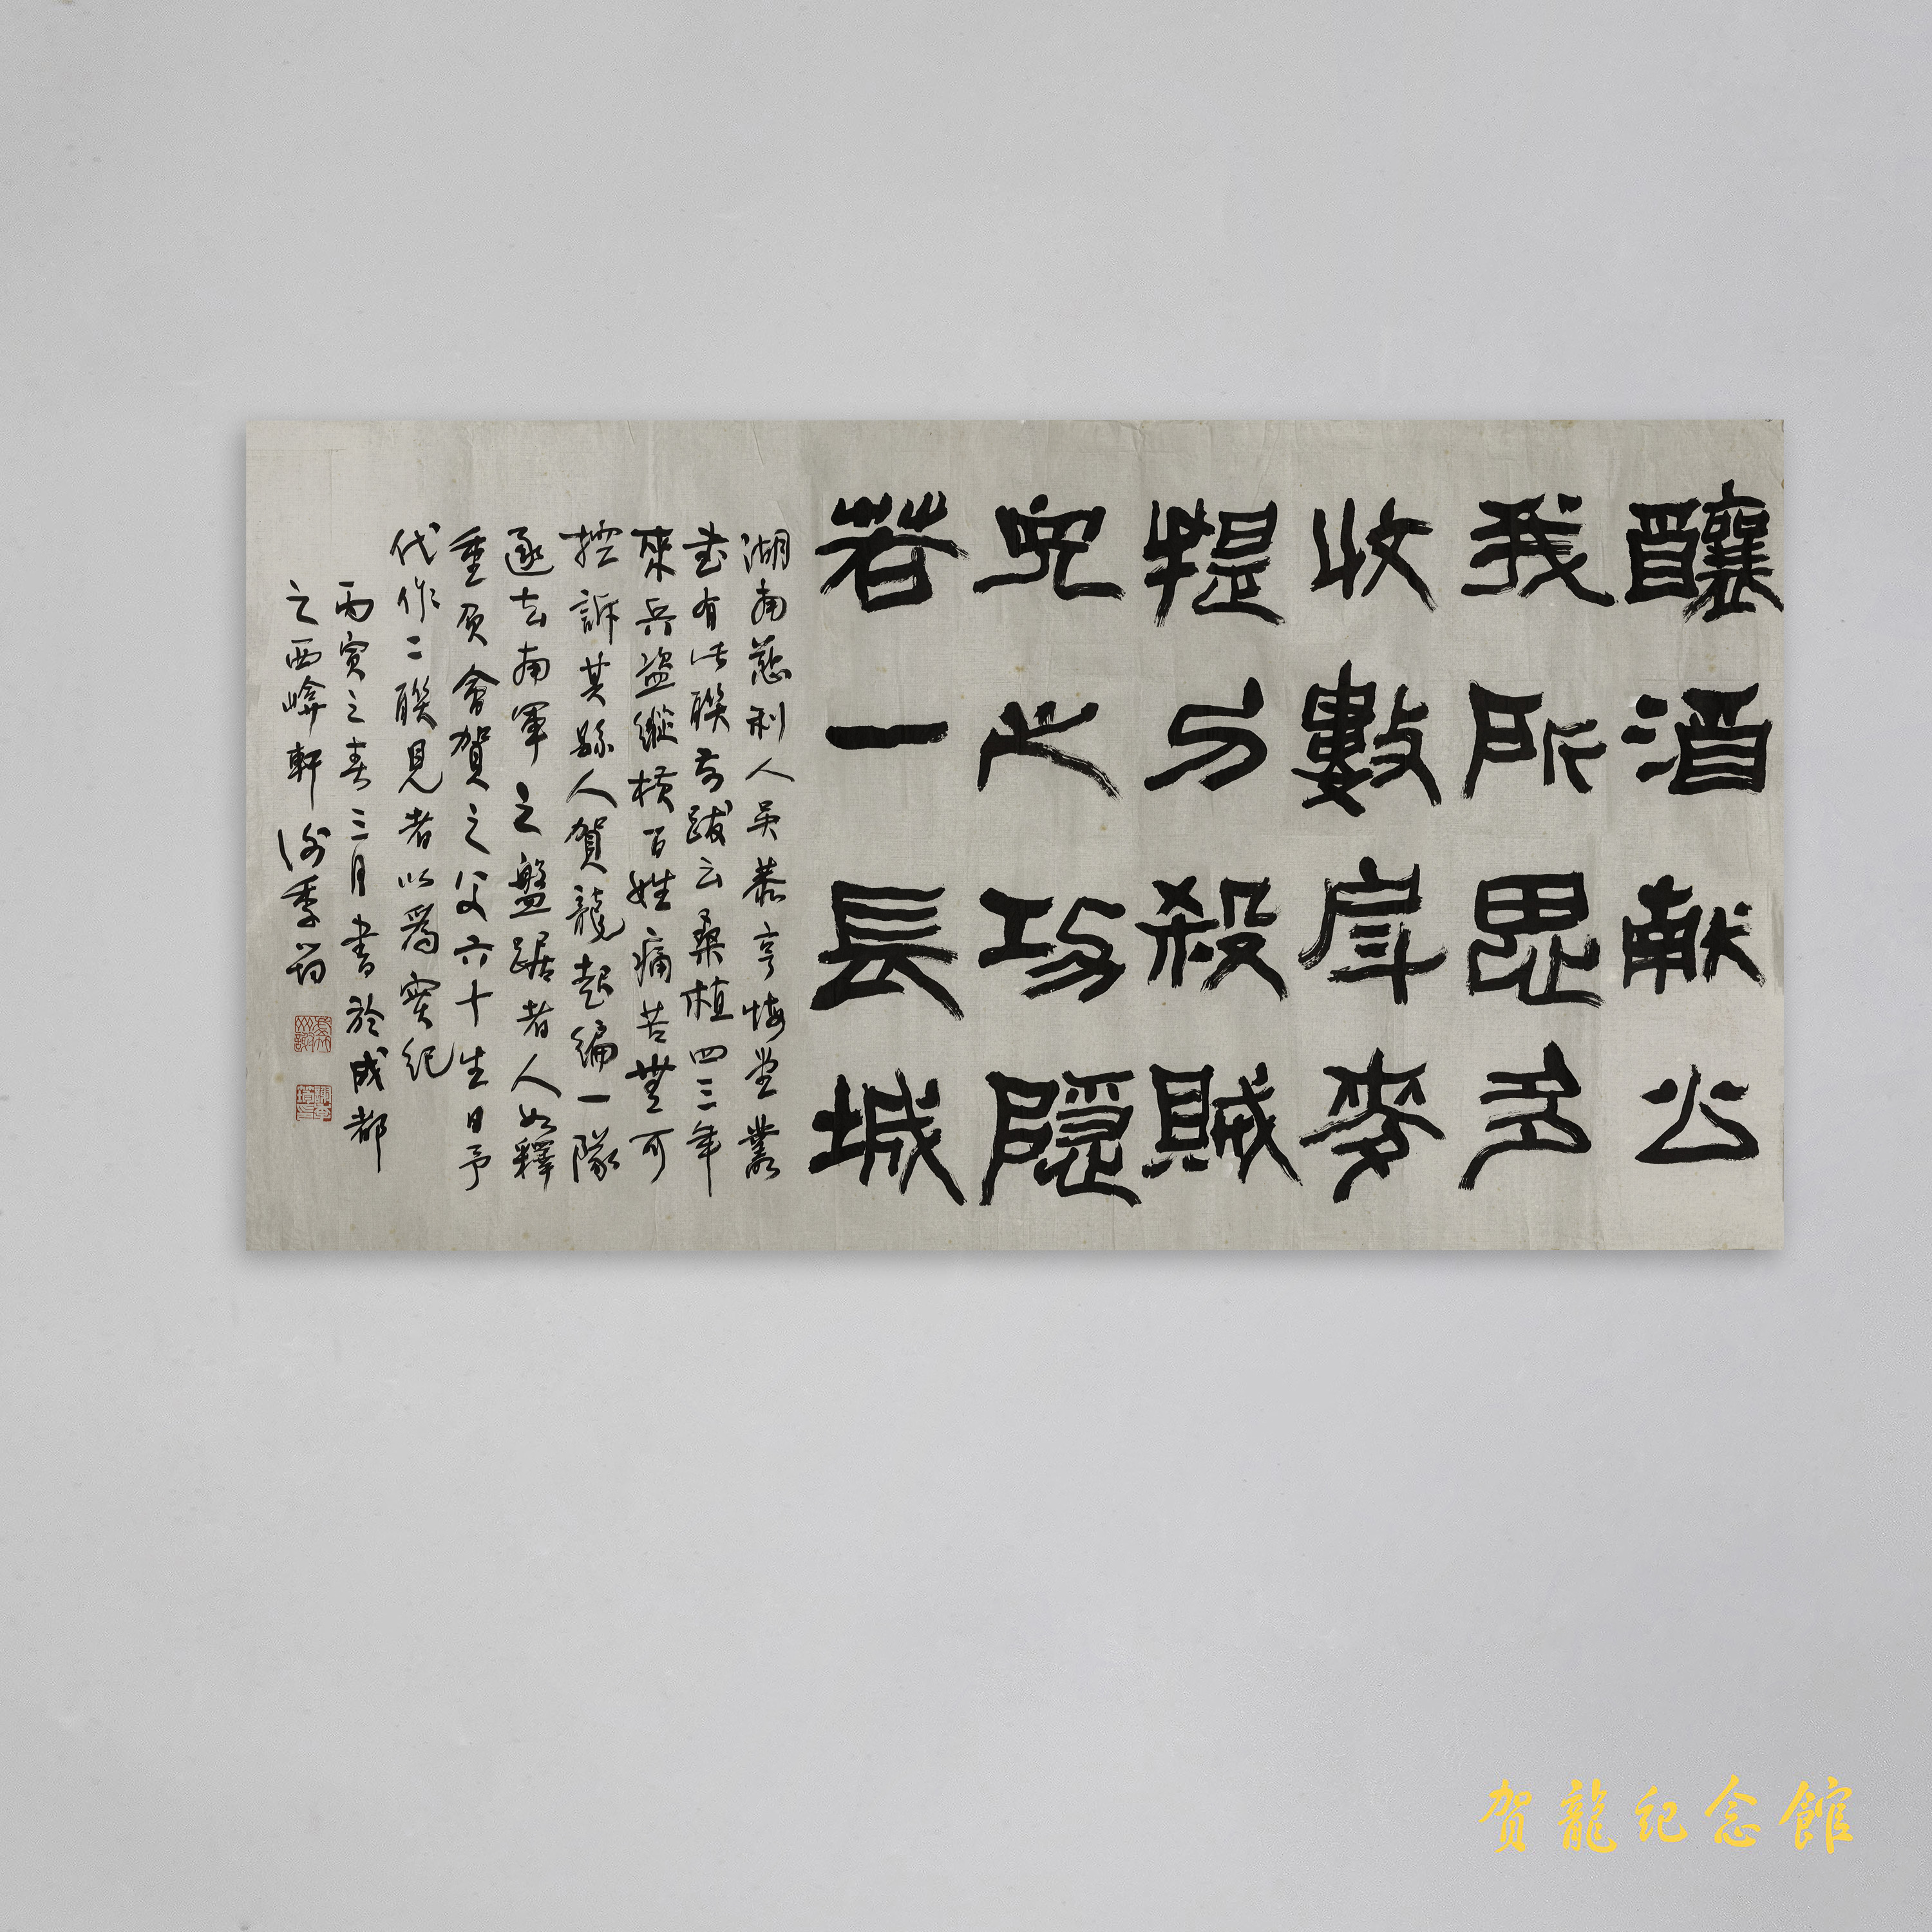 釀酒献公
我所多
收數麥
提刀殺賊
兒之功隱
若一長城
湖南慈利人吳恭亨悔堂叢
書有此聯前跋云桑植四三年
來兵盜縱橫百姓痛苦無可
控訴其縣人賀龍起編一隊
逐去南軍之盤踞者人如釋
重負會賀之父六十生日予
代作二聯見者以爲實紀
丙寅之春三月書於成都
之西軒 謝季筠
贺龍纪念館